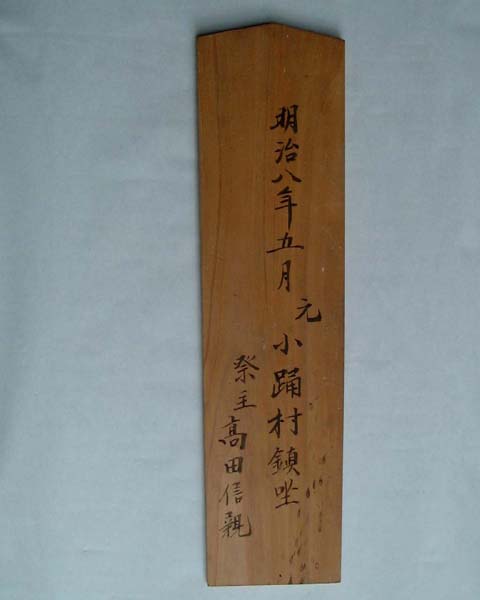 明治八年五月元小踊村鎮坐
祭主高田信親